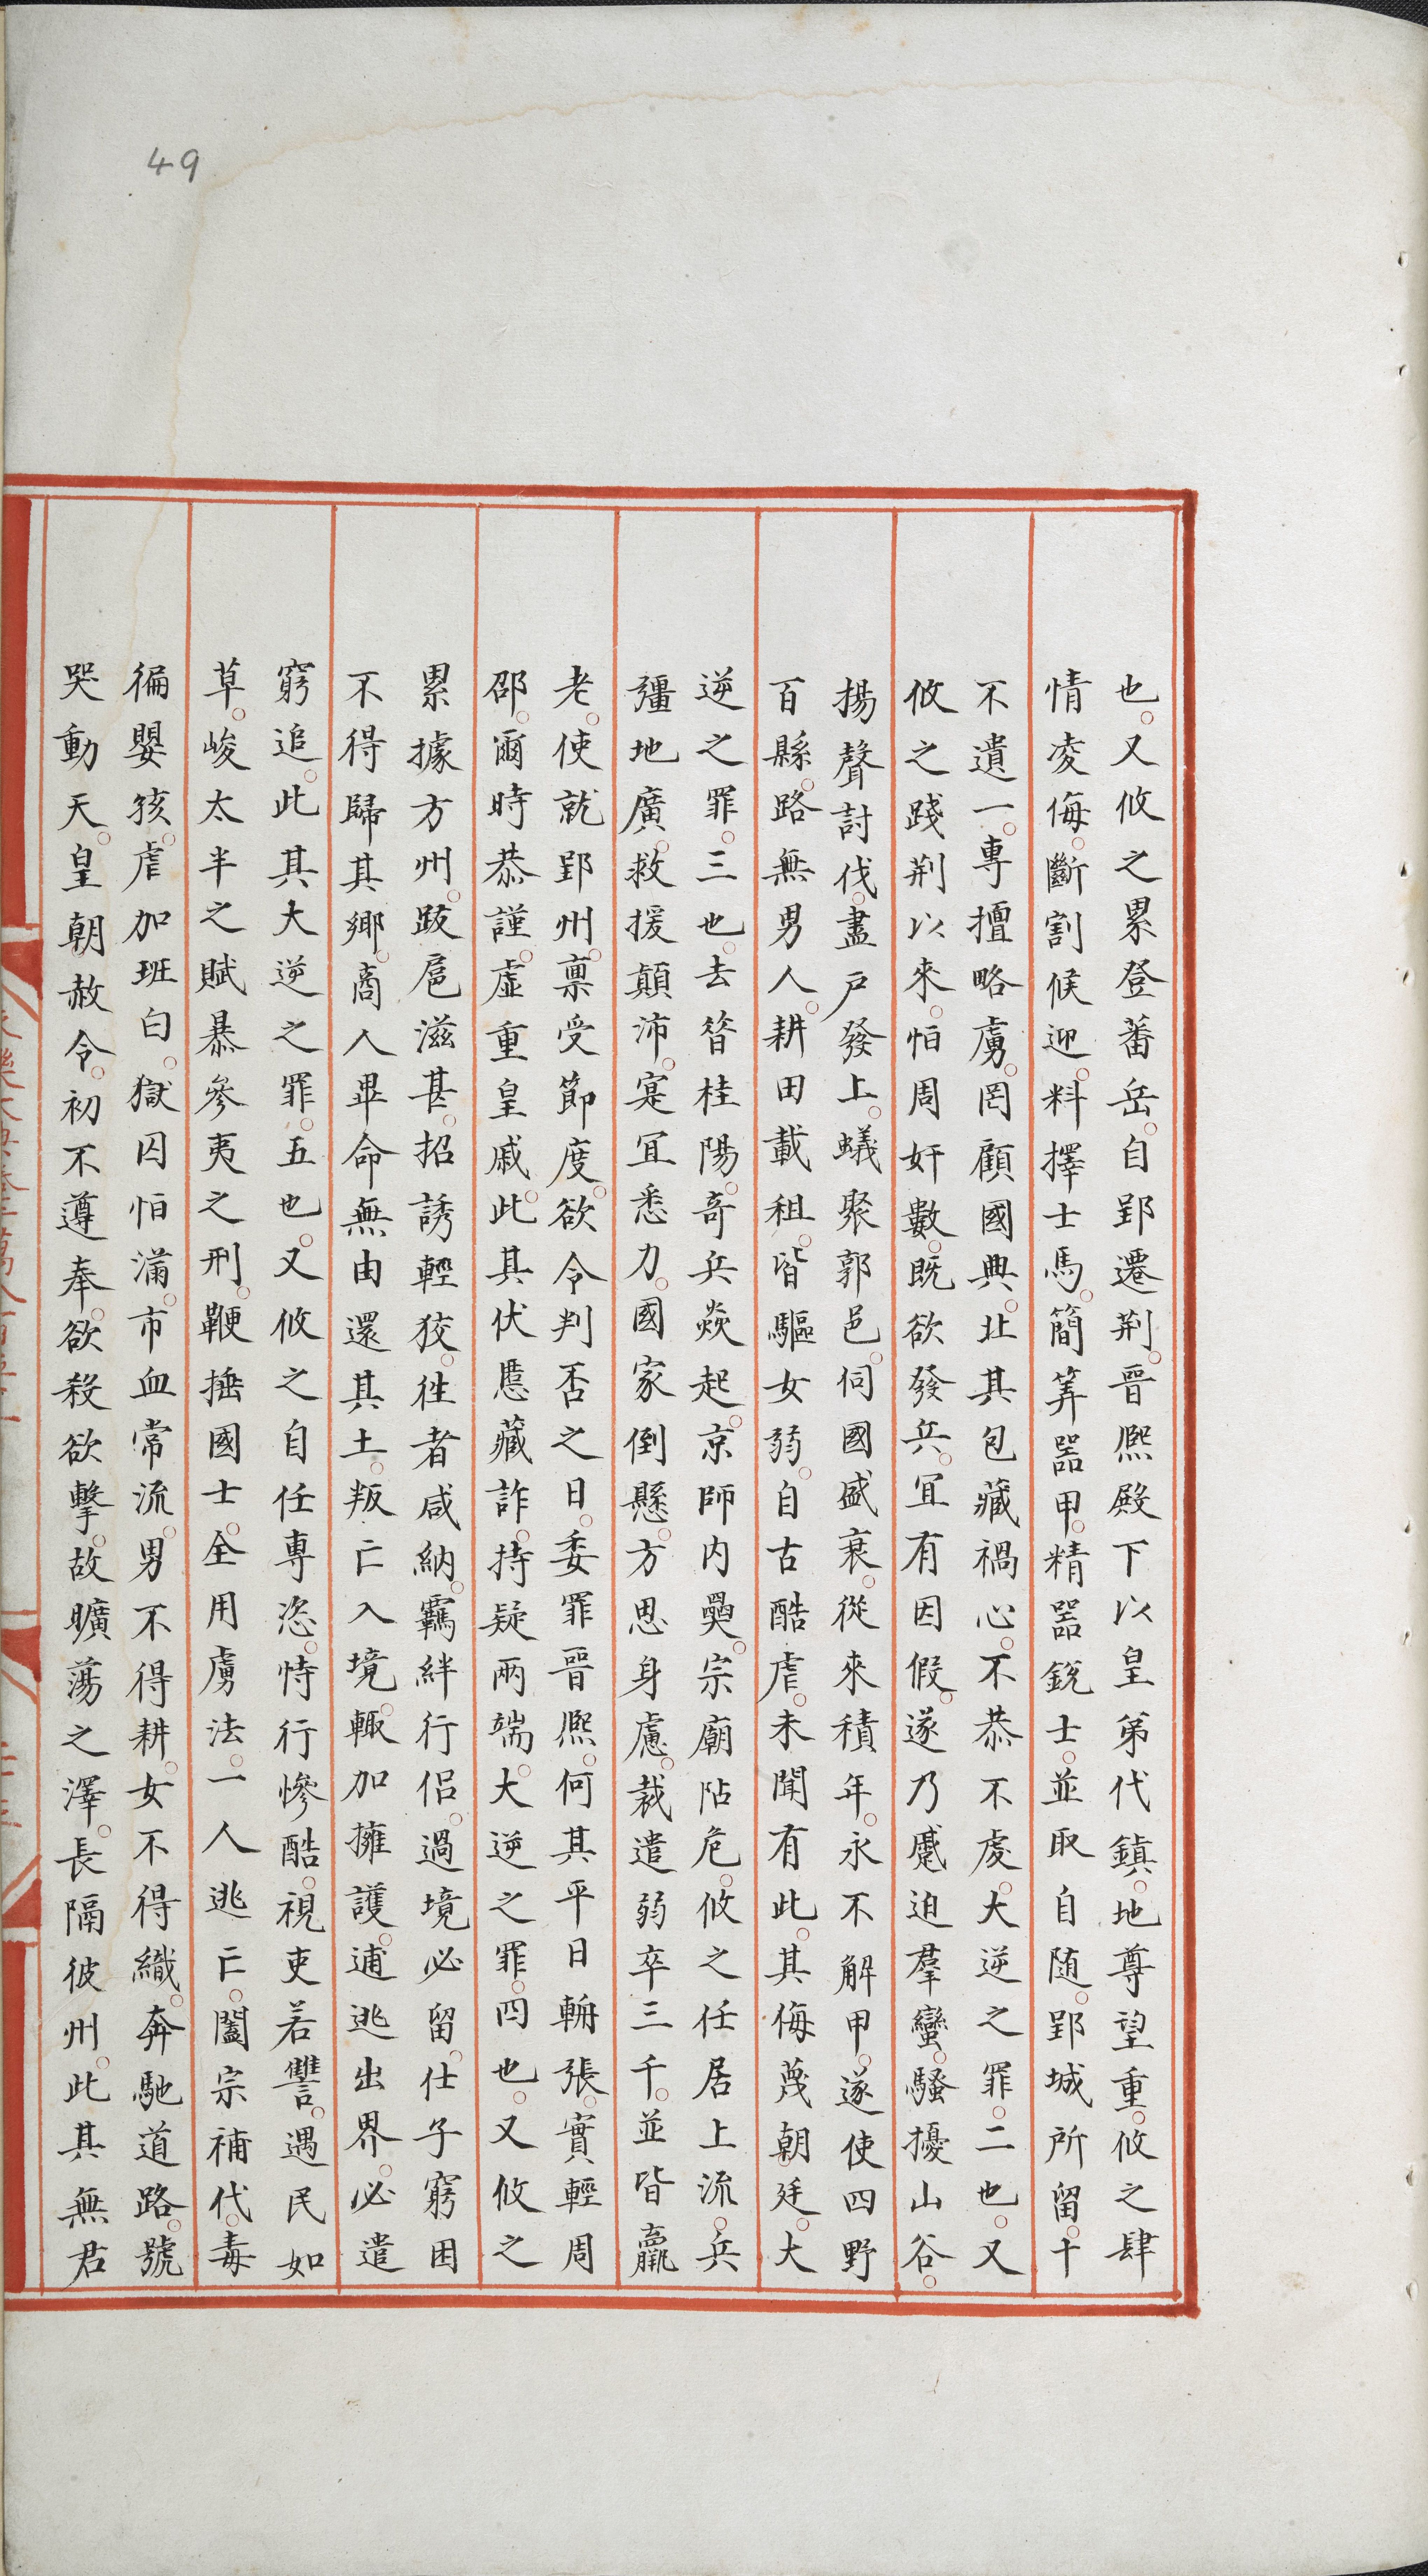 49
也。又攸之累登蕃岳。自郢遷荆。晉熈殿下以皇弟代鎮。地尊望重。攸之肆
情凌侮。斷割候迎。料擇士馬。簡筭器甲。精器銳士。並取自随。郢城所留。十
不遺一。專擅略虜。罔顧國典。此其包藏禍心。不恭不䖍。大逆之罪。二也。又
攸之踐荆以來。怕周奸數。旣欲發兵。宜有因假。遂乃蹙迫羣蠻。騷擾山谷。
揚聲討伐。盡戶發上。蟻聚郭邑。伺國盛衰。從來積年。永不解甲。遂使四野
百縣。路無男人。耕田載租。皆驅女弱。自古酷虐。未聞有此。其侮蔑朝廷。大
逆之罪。三也。去昝桂陽。竒兵焱起。京師内奰。宗廟阽危。攸之任居上流。兵
彊地廣。救援顛沛。寔宜悉力。國家倒懸。方思身慮。裁遣弱卒三千。並皆羸
老。使就郢州。禀受節度。欲令判否之日。委罪晉熈。何其平日輈張。實輕周
邵。爾時恭謹。虛重皇戚。此其伏慝藏詐。持疑兩端。大逆之罪。四也。又攸之
累據方州。跋扈滋甚。招誘輕狡。徃者咸納。羈絆行侣。過境必留。仕子窮困
不得歸其鄉。商人畢命無由還其土。叛亡入境。輙加擁護。逋逃出界。必遣
窮追。此其大逆之罪。五也。又攸之自任專恣。恃行慘酷。視吏若讐。遇民如
草。峻太半之賦暴參夷之刑。鞭捶國士。全用虜法。一人逃亡。闔宗補代。毒
徧嬰孩。虐加班白。獄囚怕滿。市血常流。男不得耕。女不得織。奔馳道路。號
哭動天。皇朝赦令。初不遵奉。欲殺欲擊。故曠蕩之澤。長隔彼州。此其無君